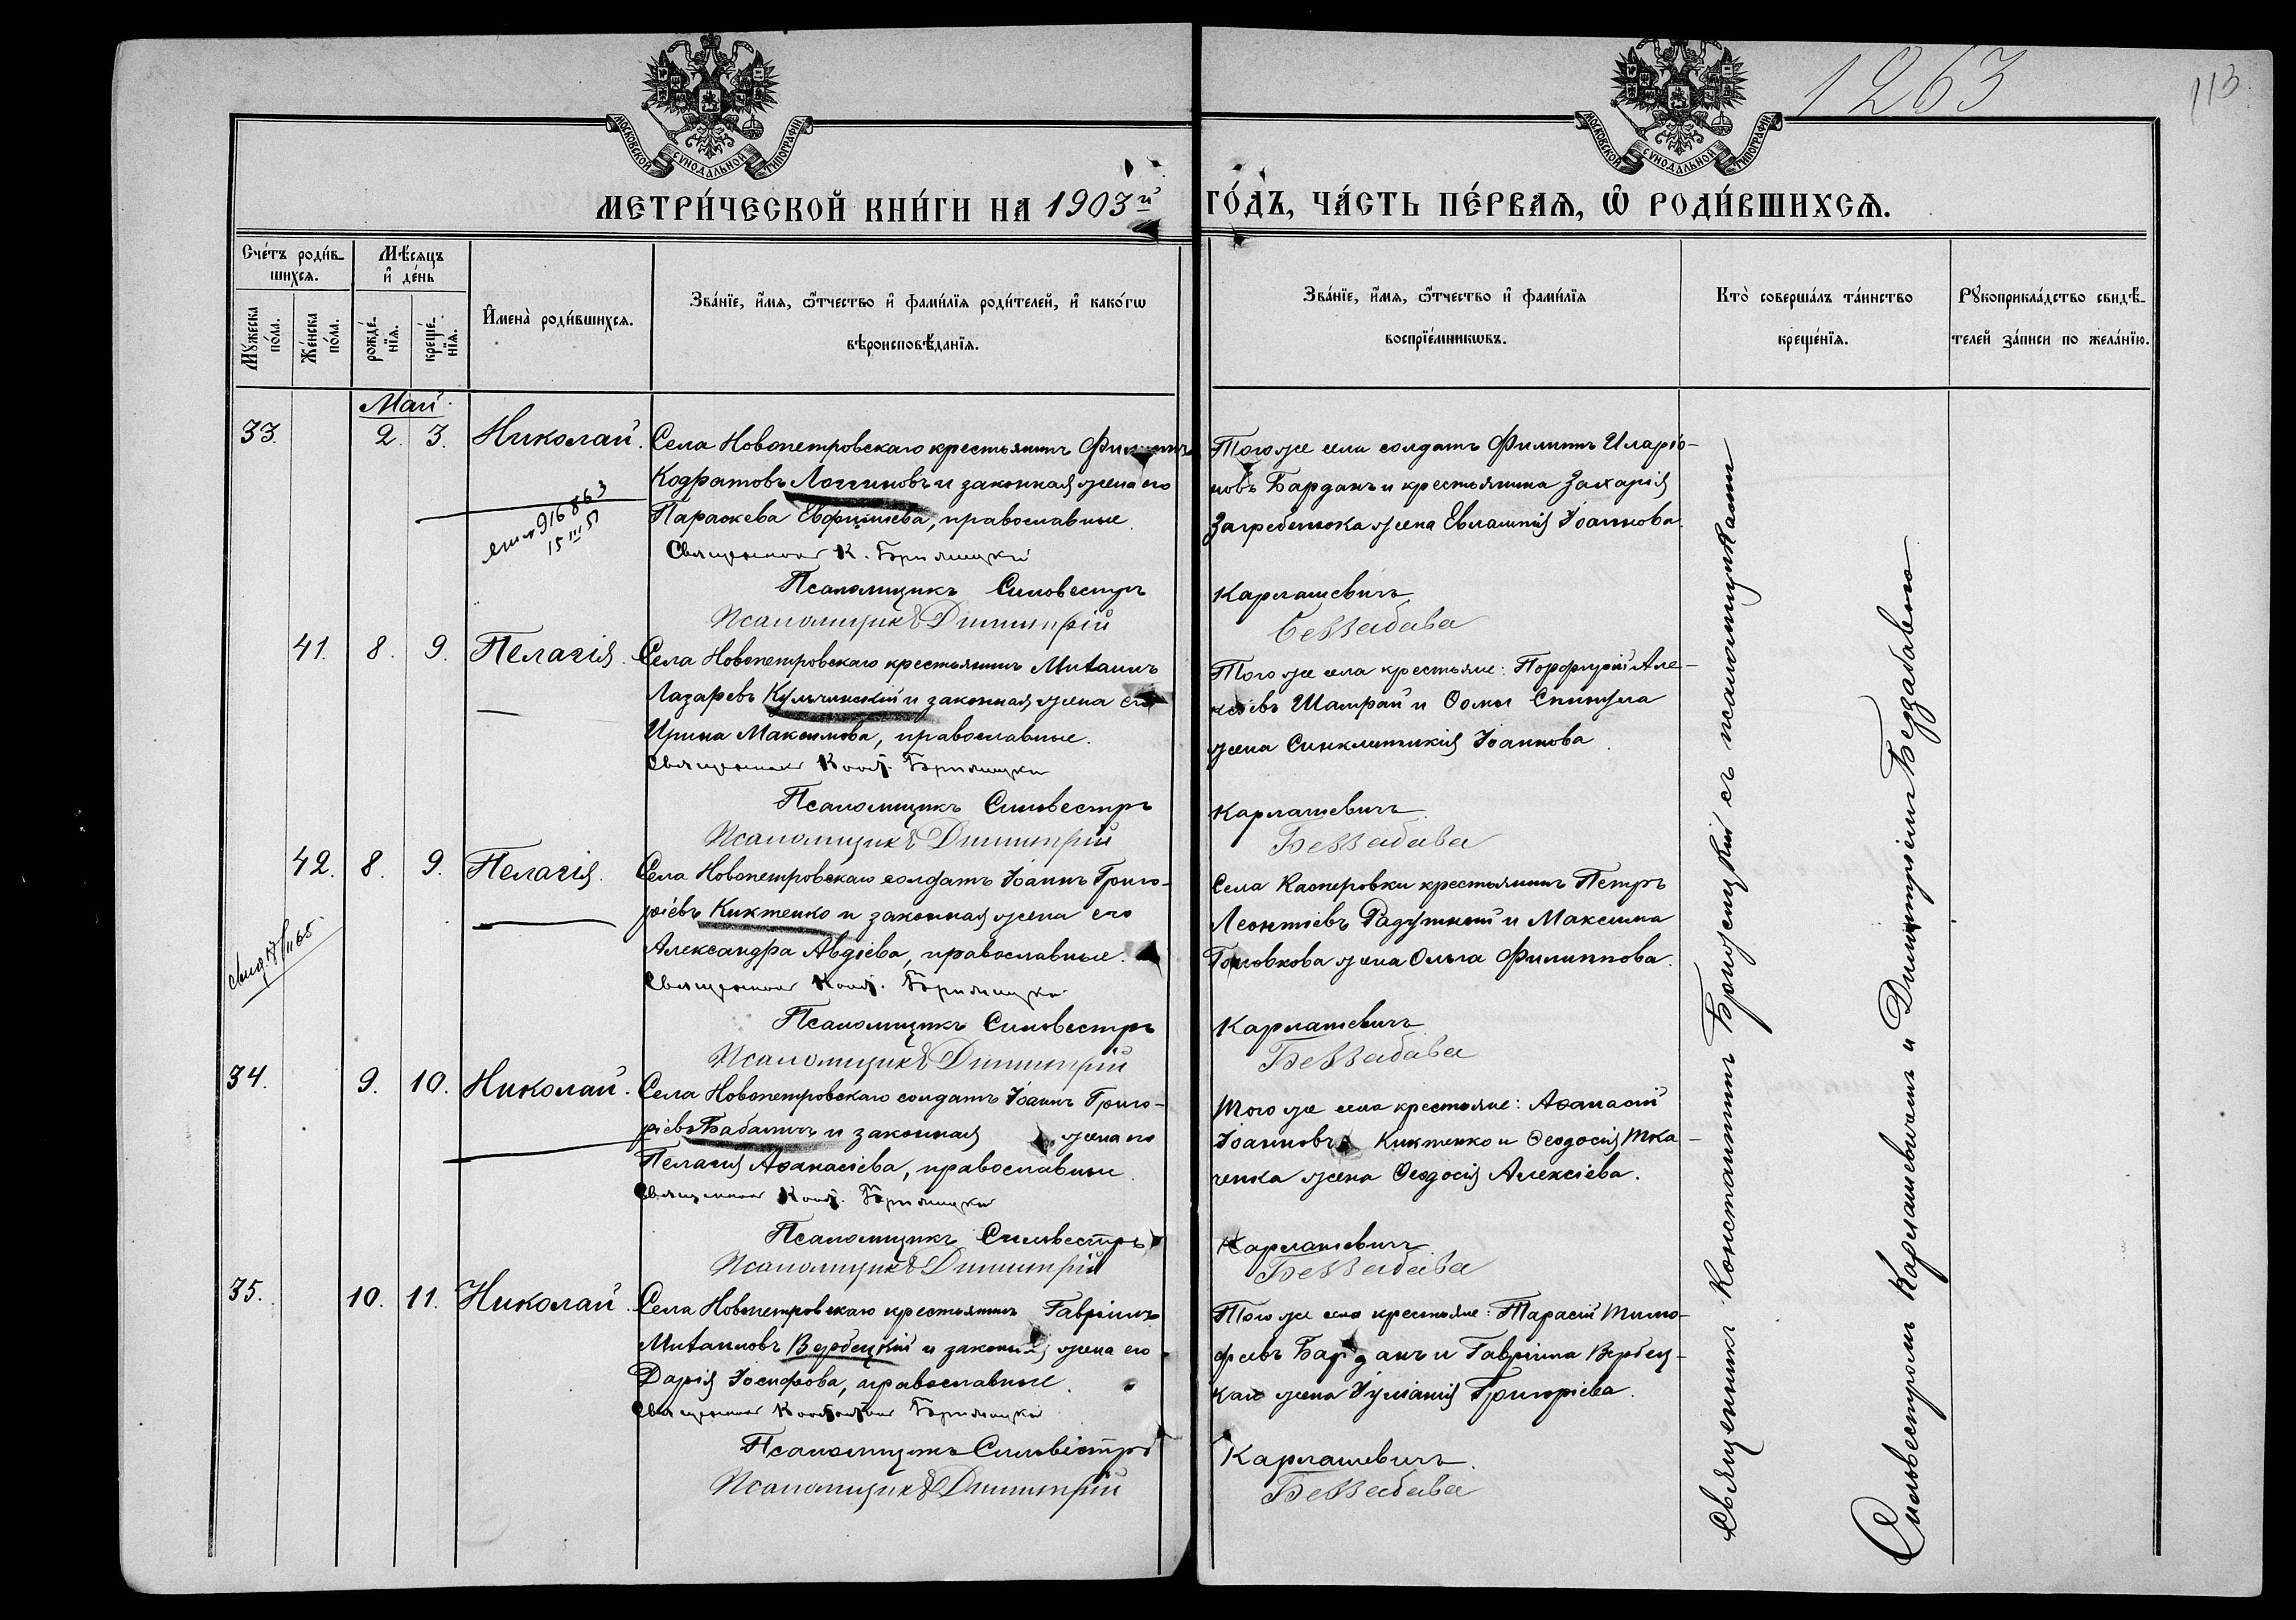 1263
113
МОСКОВСКОЙ СѴНОДАЛЬНОЙ ТИПОГРАФІИ
МОСКОВСКОЙ СѴНОДАЛЬНОЙ ТИПОГРАФІИ
МЕТРИ́ЧЕСКОЙ КНИ́ГИ НА 1903й ГО́ДЪ, ЧА́СТЬ ПЕ́РВАѦ, Ѡ҆ РОДИ́ВШИХСѦ.
Сче́тъ роди́в-
шихсѧ.
Мꙋ́жеска по́ла.
Же́нска по́ла.
Мѣ́сѧцъ
и҆ де́нь
рожде́-
нїѧ.
креще́-
нїѧ.
И҆мена̀ роди́вшихсѧ.
Зва́нїе, и҆́мѧ, ѻ҆́тчество и҆ фами́лїѧ роди́телей, и҆ како́гѡ
вѣроисповѣ́данїѧ.
Зва́нїе, и҆́мѧ, ѻ҆́тчество и҆ фами́лїѧ
воспрїе́мникѡвъ.
Кто̀ соверша́лъ та́инство
креще́нїѧ.
Рꙋкоприкла́дство свидѣ́-
телей за́писи по жела́нїю.
Май
33. 2. 3. Николай.
Села Новопетровскаго крестьянинъ Филиппъ
Кодратовъ Логгиновъ и законная жена его
Параскева Евфимиева, православные.
Священник К. Бржезицкий
Псаломщикъ Сильвестръ
Псаломщикъ Димитрій
Того же села солдатъ Филиппъ Иларіо-
новъ Барданъ и крестьянина Захарія
Загребенюка жена Евлампія Іоаннова.
Карлашевичъ.
Беззабава
916863
15 III 51
41. 8. 9. Пелагія.
Села Новопетровскаго крестьянинъ Михаилъ
Лазаревъ Кульчинский и законная жена его
Ирина Максимова, православные.
Священник Конст. Бржезицкий
Псаломщикъ Сильвестръ
Псаломщикъ Димитрій
Того же села крестьяне: Порфирій Але-
ксіевъ Шамрай и Ѳомы
жена Синклитикія Іоаннова.
Карлашевичъ
Беззабава
42. 8. 9. Пелагія.
Села Новопетровскаго солдатъ Іоаннъ Григо-
ріевъ Кихтенко и законная жена его
Александра Авдіева, православные.
Священник Конст. Бржезицкий
Псаломщикъ Сильвестръ
Псаломщикъ Димитрій
Села Касперовки крестьянинъ Петръ
Леонтіевъ Радушный и Максима
Головкова жена Ольга Филиппова.
Карлашевичъ
Беззабава
34. 9. 10. Николай.
Села Новопетровскаго солдатъ Іоаннъ Григо-
ріевъ Бабанинъ и законная жена его
Пелагия Аѳанасіева, православные.
Священник Конст. Бржезицкий
Псаломщикъ Сильвестръ
Псаломщикъ Димитрій
Того же села крестьяне: Аѳанасій
Іоанновъ Кихтенко и Ѳеодосія Тка-
ченка жена Ѳеодосія Алексіева.
Карлашевичъ
Беззабава
35. 10. 11. Николай.
Села Новопетровскаго крестьянинъ Гавріилъ
Михаиловъ Вербецкий и законная жена его
Дарія Іосифова, православные.
Священник Константин Бржезицкий
Псаломщикъ Сильвестръ
Псаломщикъ Димитрій
Того же села крестьяне: Тарасій Тимо-
феевъ Барданъ и Гавріила Вербец-
каго жена Іуліанія Григоріева.
Карлашевичъ.
Беззабава
Священникъ Константинъ Бржезицкій съ псаломщиками
Сильвестромъ Карлашевичемъ и Димитріемъ Беззабавою